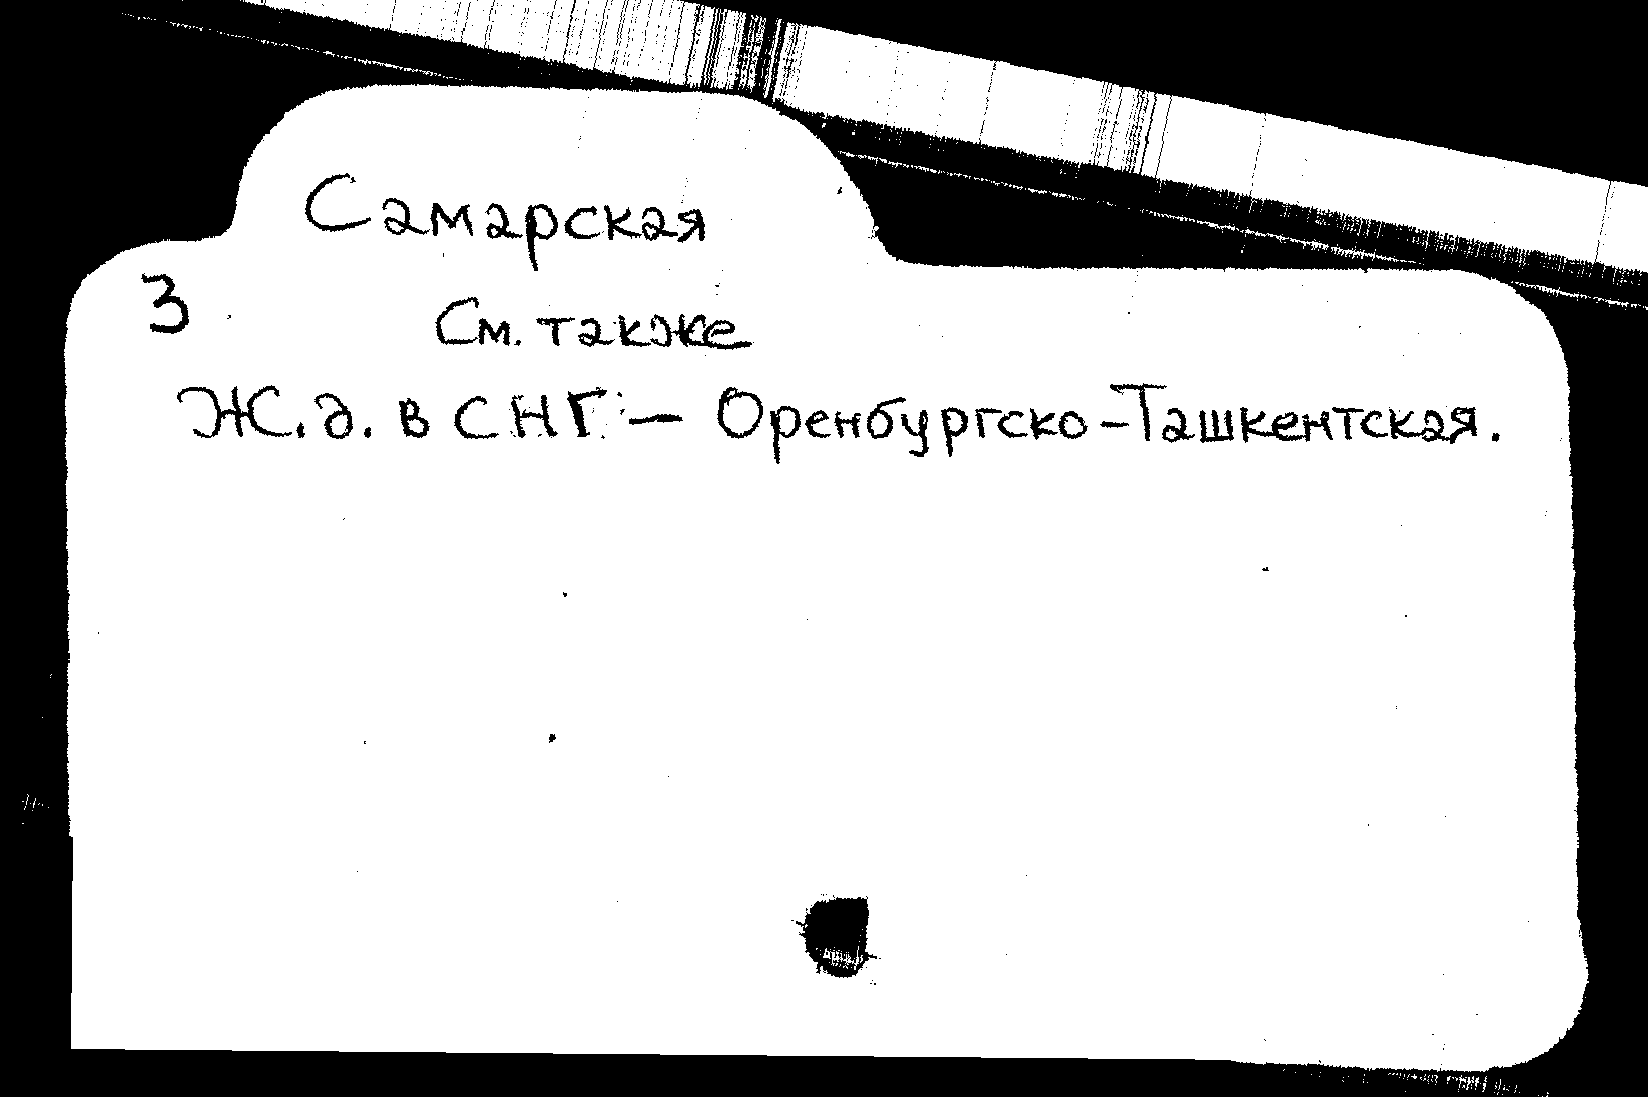 Самарская
3
См. также
Ж.д. в СНГ — Оренбургско-Ташкентская.